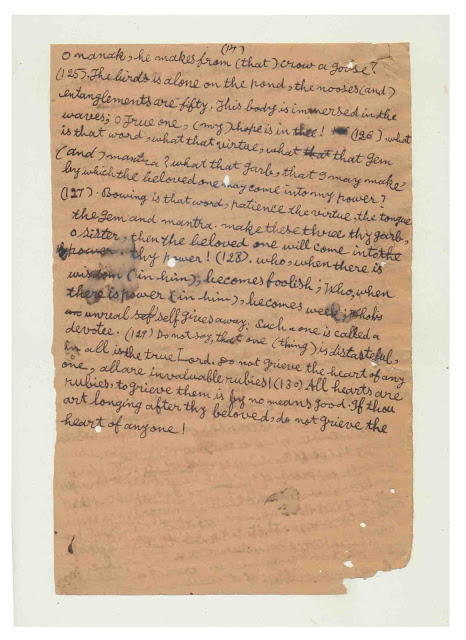 (17)
O nanak, he makes from (that) crow a goose?
(125). The birds is alone on the pond, the nooses (and)
entanglements are fifty. This body is immersed in the
waves; O True one, (my) hope is in thee! (126), what
is that word, what that virtue, what that that Gem
(and) mantra? what that Garb, that I may make?
by which the beloved one may come into my power?
(127). Bowing is that word, patience the virtue, the tongue
the Gem and mantra. make these three thy garb,
O sister, then the beloved one will come into the
power thy power! (128). who, when there is
wisdom (in him), becomes foolish; who, when
there is power (in him), becomes week;
unreal self gives away: Such a one is called a
devotee. (129) Do not say, that one (thing) is distasteful,
in all is the true Lord. Do not grieve the heart of any
one, all are invaluable rubies! (130) All hearts are
rubies; to grieve them is by no means good. If thou
art longing after thy beloved, do not grieve the
heart of anyone!